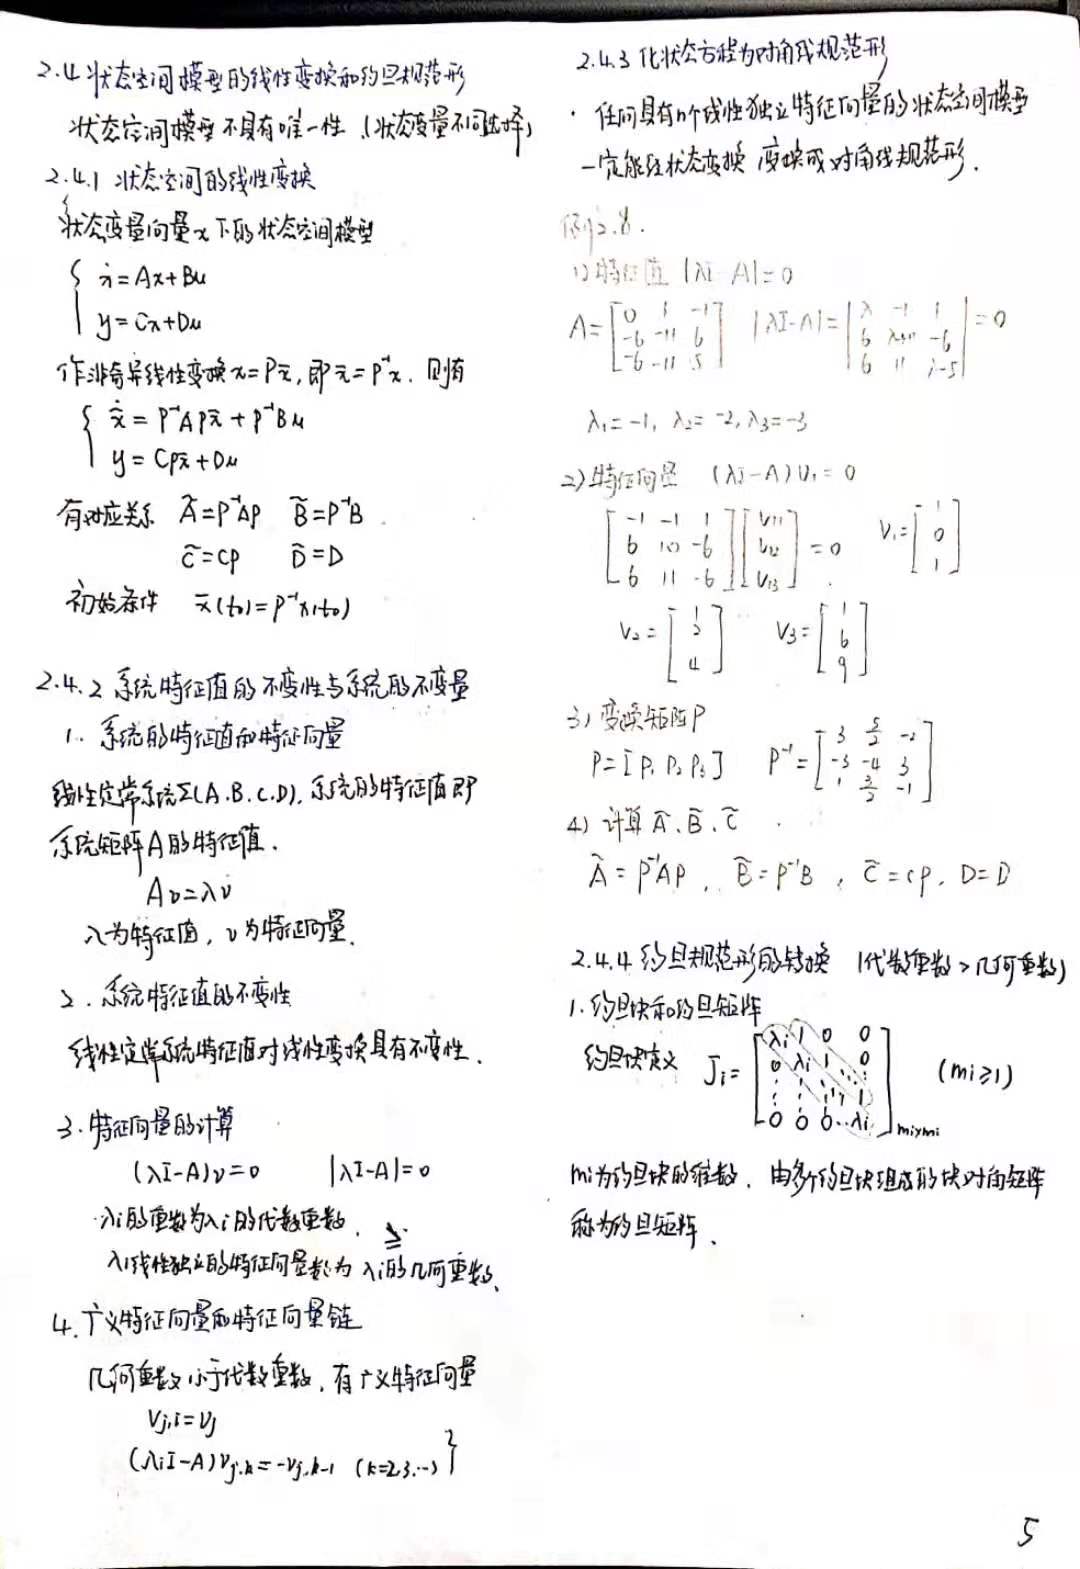 2.4 状态空间模型的线性变换和约旦规范形
状态空间模型不具有唯一性 (状态变量不同选择)
2.4.1 状态空间的线性变换
状态变量向量x下的状态空间模型
ẋ=Ax+Bu
y=Cx+Du
作非奇异线性变换x=Px̃,即x̃=P⁻¹x.则有
x̃̇=P⁻¹APx̃+P⁻¹Bu
y=CPx̃+Du
有对应关系 Ã=P⁻¹AP B̃=P⁻¹B
C̃=CP D̃=D
初始条件 x̃(t₀)=P⁻¹x(t₀)
2.4.2 系统特征值的不变性与系统的不变量
1. 系统的特征值和特征向量
线性定常系统Σ(A.B.C.D),系统的特征值即
系统矩阵A的特征值.
Aν=λν
λ为特征值,ν为特征向量.
2. 系统特征值的不变性
线性定常系统特征值对线性变换具有不变性.
3. 特征向量的计算
(λI-A)ν=0 |λI-A|=0
λi的重数为λi的代数重数. ≥
λi线性独立的特征向量数为λi的几何重数.
4. 广义特征向量和特征向量链
几何重数小于代数重数,有广义特征向量
Vj,1=Vj
(λiI-A)Vj,k=-Vj,k-1 (k=2,3,…)
2.4.3 化状态方程为对角线规范形
· 任何具有n个线性独立特征向量的状态空间模型
一定能经状态变换 变换成对角线规范形.
例2.8.
1) 特征值 |λI-A|=0
A=[0 1 -1; -6 -11 6; -6 -11 5] |λI-A|=|λ -1 1; 6 λ+11 -6; 6 11 λ-5|=0
λ₁=-1, λ₂=-2, λ₃=-3
2) 特征向量 (λI-A)V₁=0
[-1 -1 1; 6 10 -6; 6 11 -6][V11; V12; V13]=0 V₁=[1; 0; 1]
V₂=[1; 2; 4] V₃=[1; 6; 9]
3) 变换矩阵P
P=[P₁ P₂ P₃] P⁻¹=[3 5/2 -2; -3 -4 3; 1 3/2 -1]
4) 计算Ã.B̃.C̃
Ã=P⁻¹AP, B̃=P⁻¹B, C̃=CP, D̃=D
2.4.4 约旦规范形的转换 (代数重数>几何重数)
1. 约旦块和约旦矩阵
约旦块定义 Ji=[λi 1 0 0; 0 λi 1 0; ⋮ ⋮ ⋱ 1; 0 0 0…λi]mi×mi (mi≥1)
mi为约旦块的维数. 由多个约旦块组成的块对角矩阵
称为约旦矩阵.
5